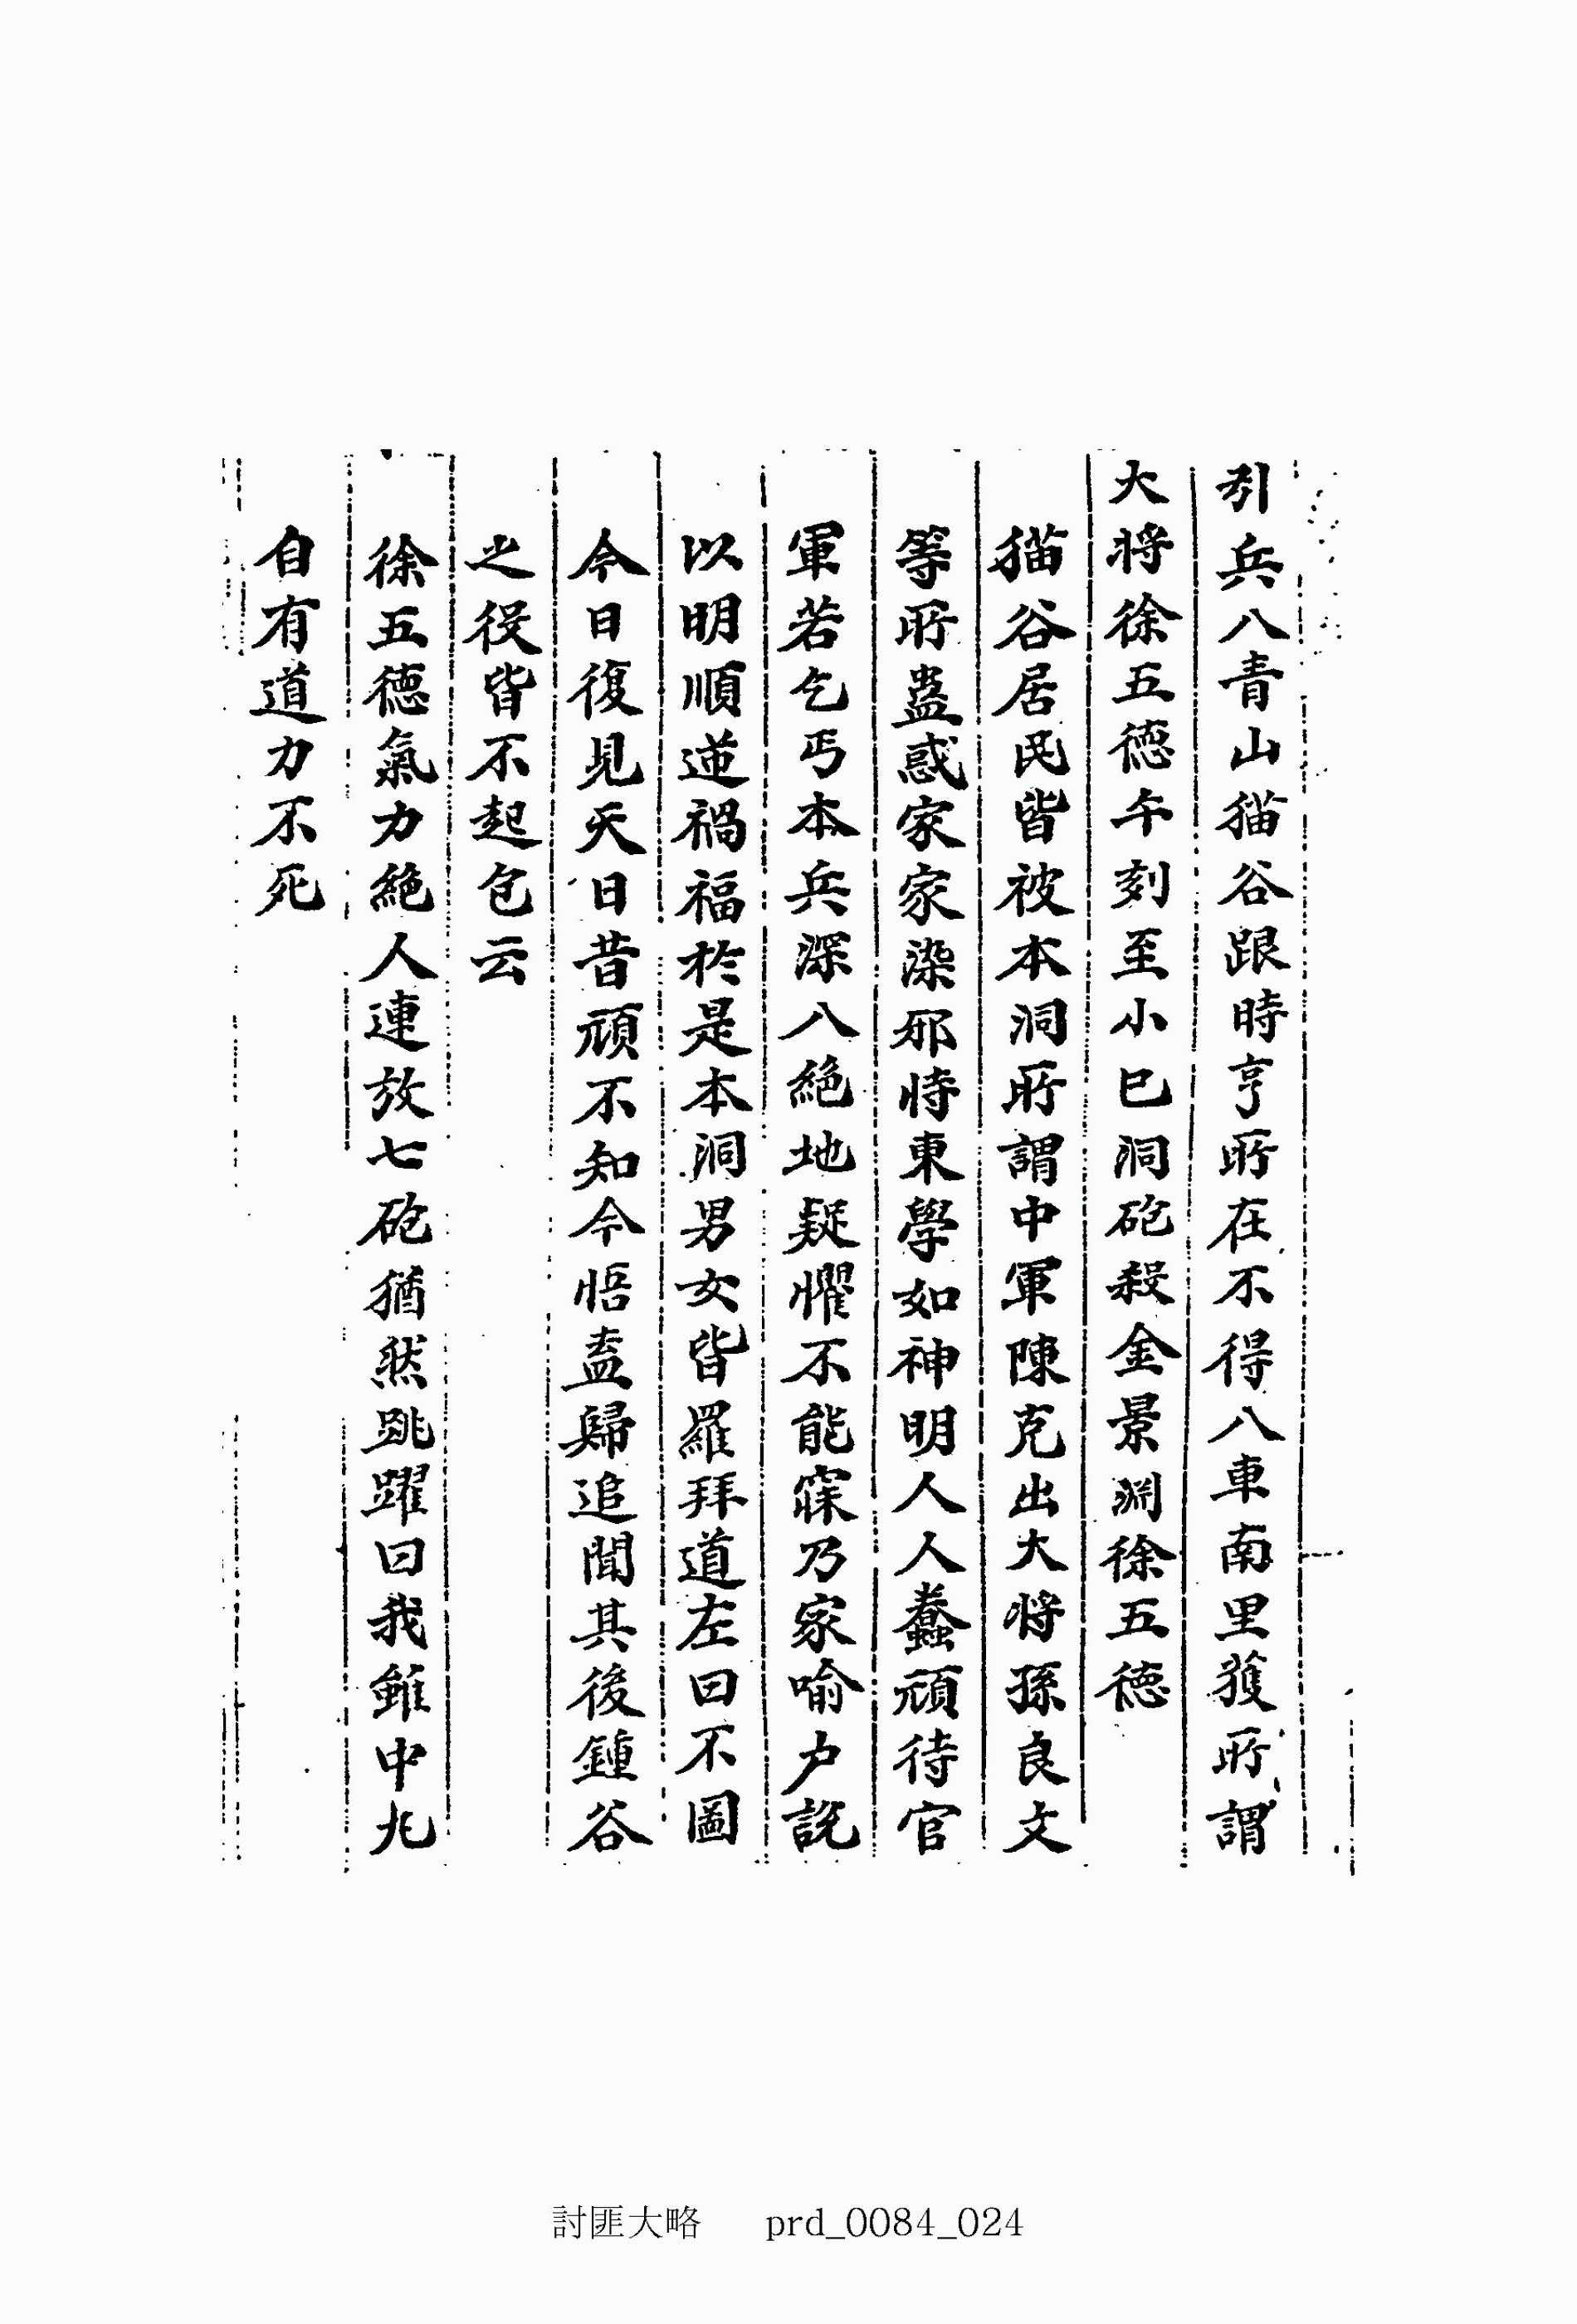 引兵入青山猫谷跟時亨所在不得入車南里獲所謂
大將徐五德午刻至小巳洞砲殺金景淵徐五德
猫谷居民皆被本洞所謂中軍陳克出大將孫良文
等所蠱惑家家染邪恃東學如神明人人蠢頑待官
軍若乞丐本兵深入絶地疑懼不能寐乃家喩户說
以明順逆禍福於是本洞男女皆羅拜道左曰不圖
今日復見天日昔頑不知今悟盍歸追聞其後鍾谷
之役皆不起包云
徐五德氣力絶人連放七砲猶然跳躍曰我雖中丸
自有道力不死
討匪大略 prd_0084_024